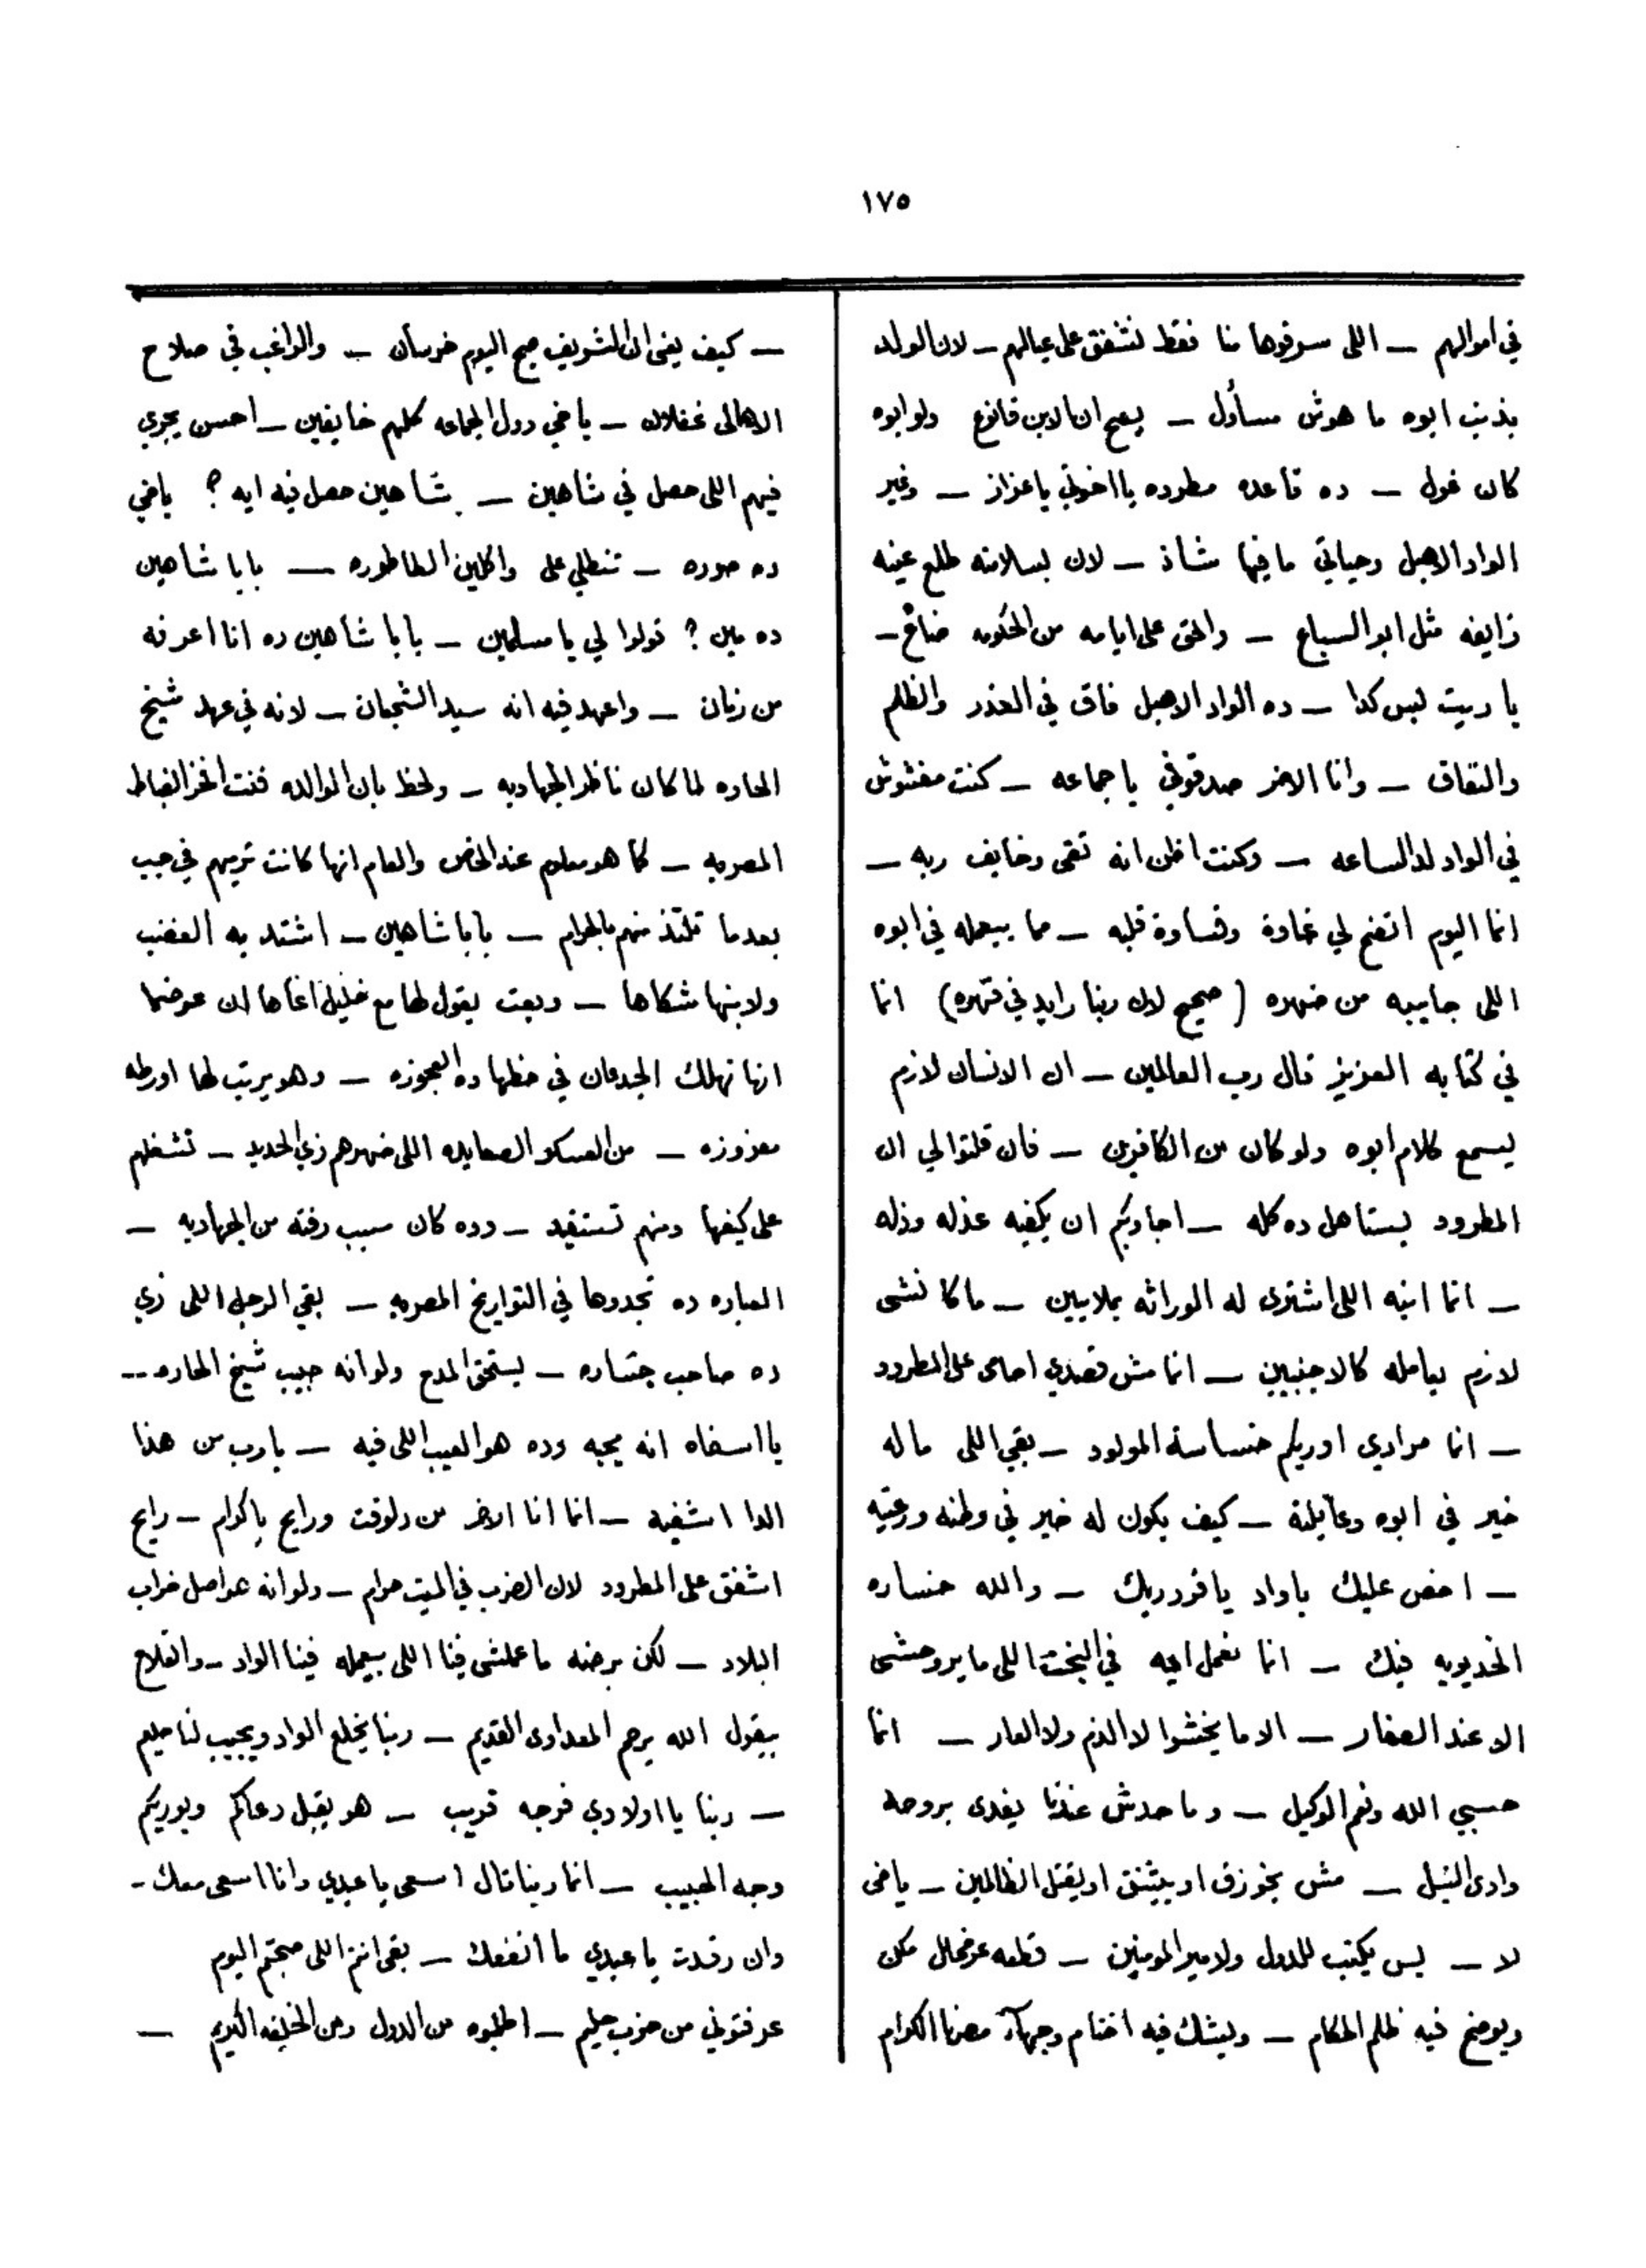 ١٧٥
في اموالهم — اللى سرقوها منا فقط نشفق على عيالهم — لان الولد
بذنب ابوه ما هوش مسأول — يصح ان الابن قانوع ولو ابوه
كان غول — ده قاعده مطروده يا اخوتي يا عزاز — وغير
الواد الاهبل وحياتي ما فيها شاذ — لان بسلامته طلع عينه
زايغه مثل ابو السباع — والحق على ايامه من الحكومه ضاع —
يا ريت بس كدا — ده الواد الاهبل فاق في الغدر والظلم
والنفاق — وانا الاخر صدقوني يا جماعه — كنت مغشوش
في الواد لدالساعه — وكنت اظن انه تقى وخايف ربه —
انما اليوم اتضح لي غاوة وقساوة قلبه — مما بيعمله في ابوه
اللى جايبه من ضهره (صحيح لان ربنا رايد في قهره) انما
في كتابه العزيز قال رب العالمين — ان الانسان لازم
يسمع كلام ابوه ولو كان من الكافرين — فان قلتوا لي ان
المطرود يستاهل ده كله — اجاوبكم ان يكفيه عذله وذله
— انما ابنه اللى اشترى له الوراثه بملايين — ما كانشى
لازم يعامله كالاجنبيين — انا مش قصدي احامى على المطرود
— انما مرادي اوريكم خساسة المولود — بقي اللى ماله
خير في ابوه وعايلته — كيف يكون له خير في وطنه ورعيته
— اخص عليك يا واد يا قرد ريك — والله خساره
الخديويه فيك — انما نعمل ايه في البخت اللى ما يروحشى
الا عند الصغار — الا ما يخشوا لا الذم ولا العار — انما
حسبي الله ونعم الوكيل — وما حدش عندنا يفدى بروحه
وادى النيل — مش يخوزق او يشنق او يقتل الظالمين — ياخى
لا — بس يكتب للدول ولامير المومنين — قطعه عرضحال مكن
ويوضح فيه ظلم الحكام — وليشك فيه اختام وجهآء مصرنا الكرام
— كيف يفى ان الشريف صبح اليوم خرسان — والراغب في صلاح
الاهالى غفلان — ياخي دول الجماعه كلهم خايفين — احسن يجري
فيهم اللى حصل في شاهين — شاهين حصل فيه ايه ؟ ياخي
ده صوره — تنطلي على واكلين الطاطوره — بابا شاهين
ده مين ؟ قولوا لي يا مسلمين — بابا شاهين ده انا اعرفه
من زمان — واعهد فيه انه سيد الشجعان — لانه في عهد شيخ
الحاره لما كان ناظر الجهاديه — ولحظ بان الوالده فنت افخر الضباط
المصريه — كما هو معلوم عند الخاص والعام انها كانت ترميهم في جب
بعدما تلتذ منهم بالحرام — بابا شاهين — اشتد به الغضب
ولابنها شكاها — وبعت يقول لها مع خليل اغاها ان عوضما
انها تهلك الجدعان في حظها ده العجوزه — وهو يرتب لها اورطه
معزوزه — من العسكر الصعايده اللى ضهرهم زي الحديد — تشغلهم
على كيفها ومنهم تستفيد — وده كان سبب رفته من الجهاديه —
العباره ده تجدوها في التواريخ المصريه — بقي الرجل اللى زي
ده صاحب جساره — يستحق المدح ولو انه حبيب شيخ الحاره —
يا اسفاه انه يحبه وده هو العيب اللى فيه — يا رب من هذا
الدا اشفيه — انما انا الاخر من دلوقت ورايح يا كرام — رايح
اشفق على المطرود لان الضرب في الميت حرام — ولو انه هو اصل خراب
البلاد — لكن برضه ما عملشى فينا اللى بيعمله فينا الواد — والفلاح
بيقول الله يرحم المعداوى القديم — ربنا يخلع الواد ويجيب لنا حليم
— ربنا يا اولادي فرجه قريب — هو يقبل دعاكم ويوريكم
وجه الحبيب — انما ربنا قال اسعى يا عبدي وانا اسعى معاك —
وان رقدت يا عبدي ما انفعك — بقى انتم اللى صبحتم اليوم
عرفتوني من حزب حليم — اطلبوه من الدول ومن الخليفه الكريم —